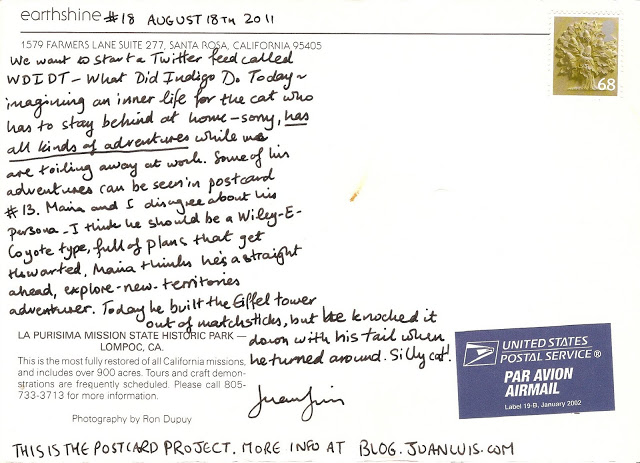 earthshine #18 AUGUST 18TH 2011
1579 FARMERS LANE SUITE 277, SANTA ROSA, CALIFORNIA 95405
68
We want to start a Twitter feed called
WDIDT – What Did Indigo Do Today –
imagining an inner life for the cat who
has to stay behind at home – sorry, has
all kinds of adventures while we
are toiling away at work. Some of his
adventures can be seen in postcard
#13. Maria and I disagree about his
persona – I think he should be a Wiley-E-
Coyote type, full of plans that get
thwarted, Maria thinks he's a straight
ahead, explore-new-territories
adventurer. Today he built the Eiffel tower
out of matchsticks, but he knocked it
down with his tail when
he turned around. Silly cat!
LA PURISIMA MISSION STATE HISTORIC PARK —
LOMPOC, CA.
This is the most fully restored of all California missions,
and includes over 900 acres. Tours and craft demon-
strations are frequently scheduled. Please call 805-
733-3713 for more information.
Photography by Ron Dupuy
UNITED STATES
POSTAL SERVICE®
PAR AVION
AIRMAIL
Label 19-B, January 2002
THIS IS THE POSTCARD PROJECT. MORE INFO AT BLOG.JUANLUIS.COM